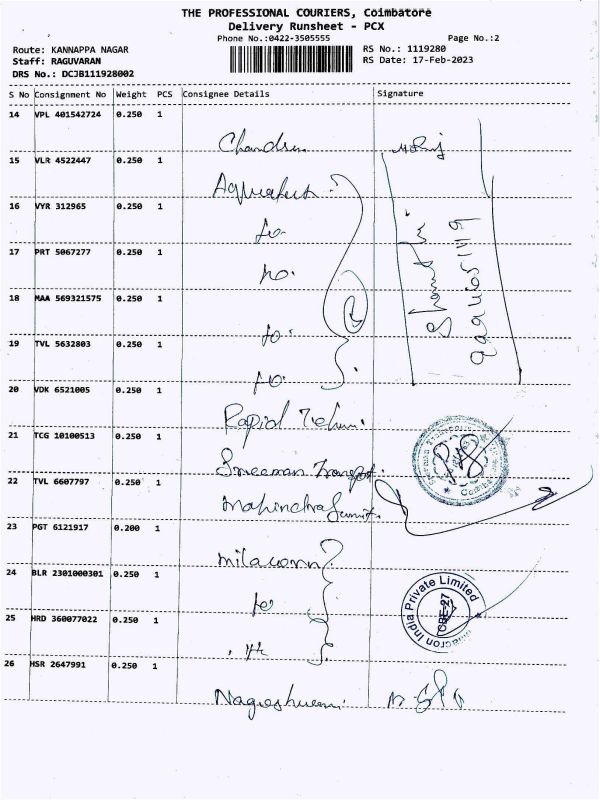 THE PROFESSIONAL COURIERS, Coimbatore
Delivery Runsheet - PCX
Phone No.:0422-3505555
Page No.:2
Route: KANNAPPA NAGAR
RS No.: 1119280
Staff: RAGUVARAN
RS Date: 17-Feb-2023
DRS No.: DCJB111928002
S No Consignment No Weight PCS Consignee Details Signature
14 VPL 401542724 0.250 1
15 VLR 4522447 0.250 1
16 VYR 312965 0.250 1
17 PRT 5067277 0.250 1
18 MAA 569321575 0.250 1
19 TVL 5632803 0.250 1
20 VDK 6521005 0.250 1
Rapid
21 TCG 10100513 0.250 1
Sreeman Transport
22 TVL 6607797 0.250 1
Mahindra
23 PGT 6121917 0.200 1
milacorn
24 BLR 2301000301 0.250 1
India Private Limited
CBE-27
25 HRD 360077022 0.250 1
26 HSR 2647991 0.250 1